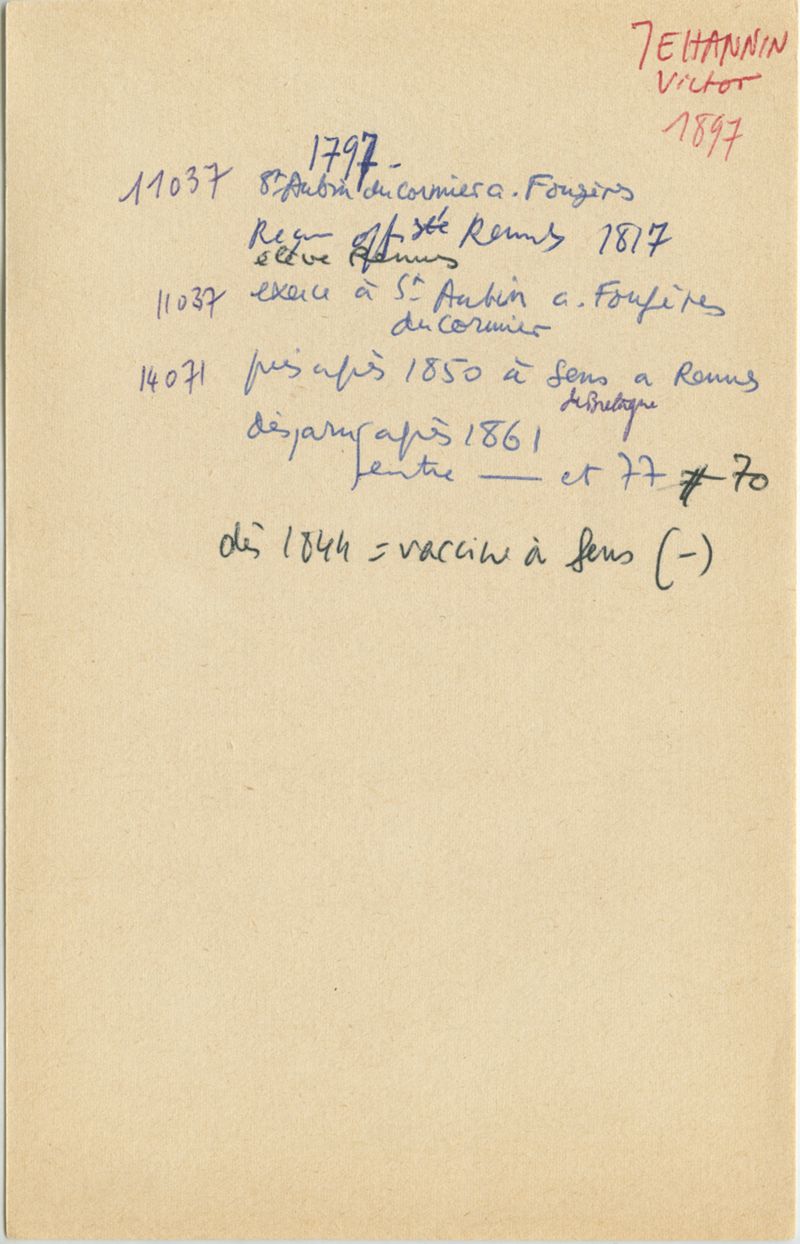 JEHANNIN
Victor
1897
1797 -
11037 St Aubin du cormier a. Fougères
Reçu off sté Rennes 1817
élève Rennes
11037 exerce à St Aubin a. Fougères
du cormier
14071 puis après 1850 à Sens a Rennes
de Bretagne
disparu après 1861
entre — et 77 # 70
dès 1844 = vaccine à Sens (-)